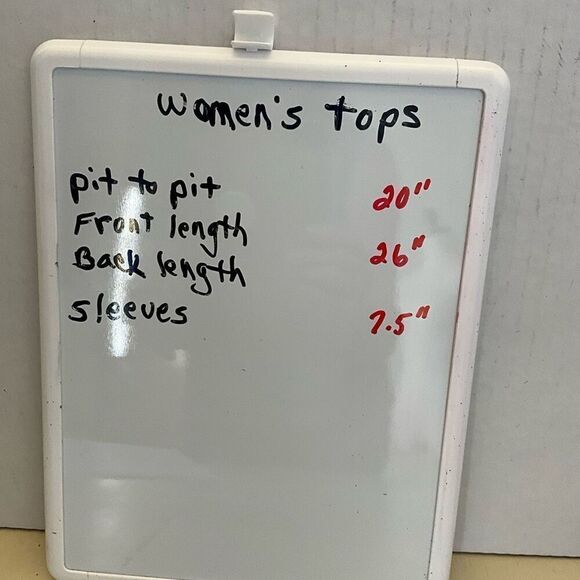 women's tops
pit to pit 20"
Front length
Back length 26"
sleeves 7.5"